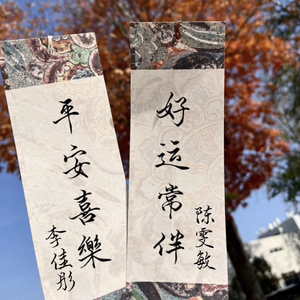 平安喜樂
李佳彤
好运常伴
陈雯敏